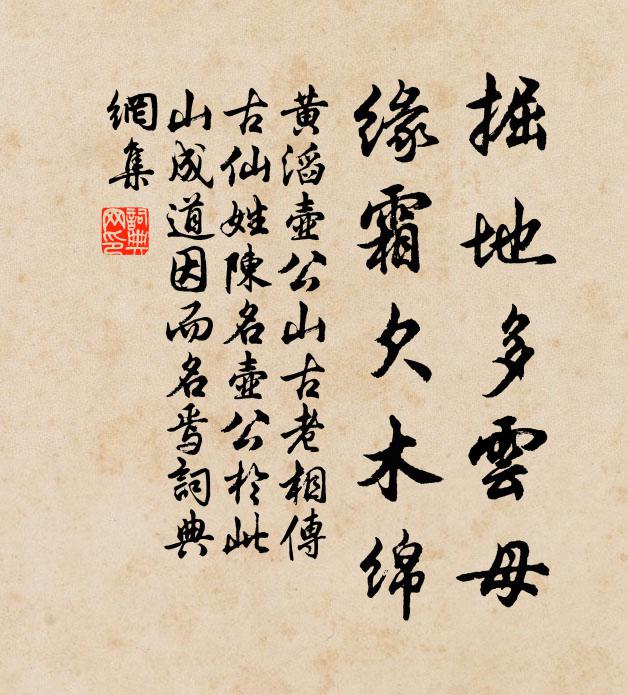 掘地多雲母
緣霜欠木綿
黃滔壺公山古老相傳
古仙姓陳名壺公於此
山成道因而名焉詞典
網集
詞典網印